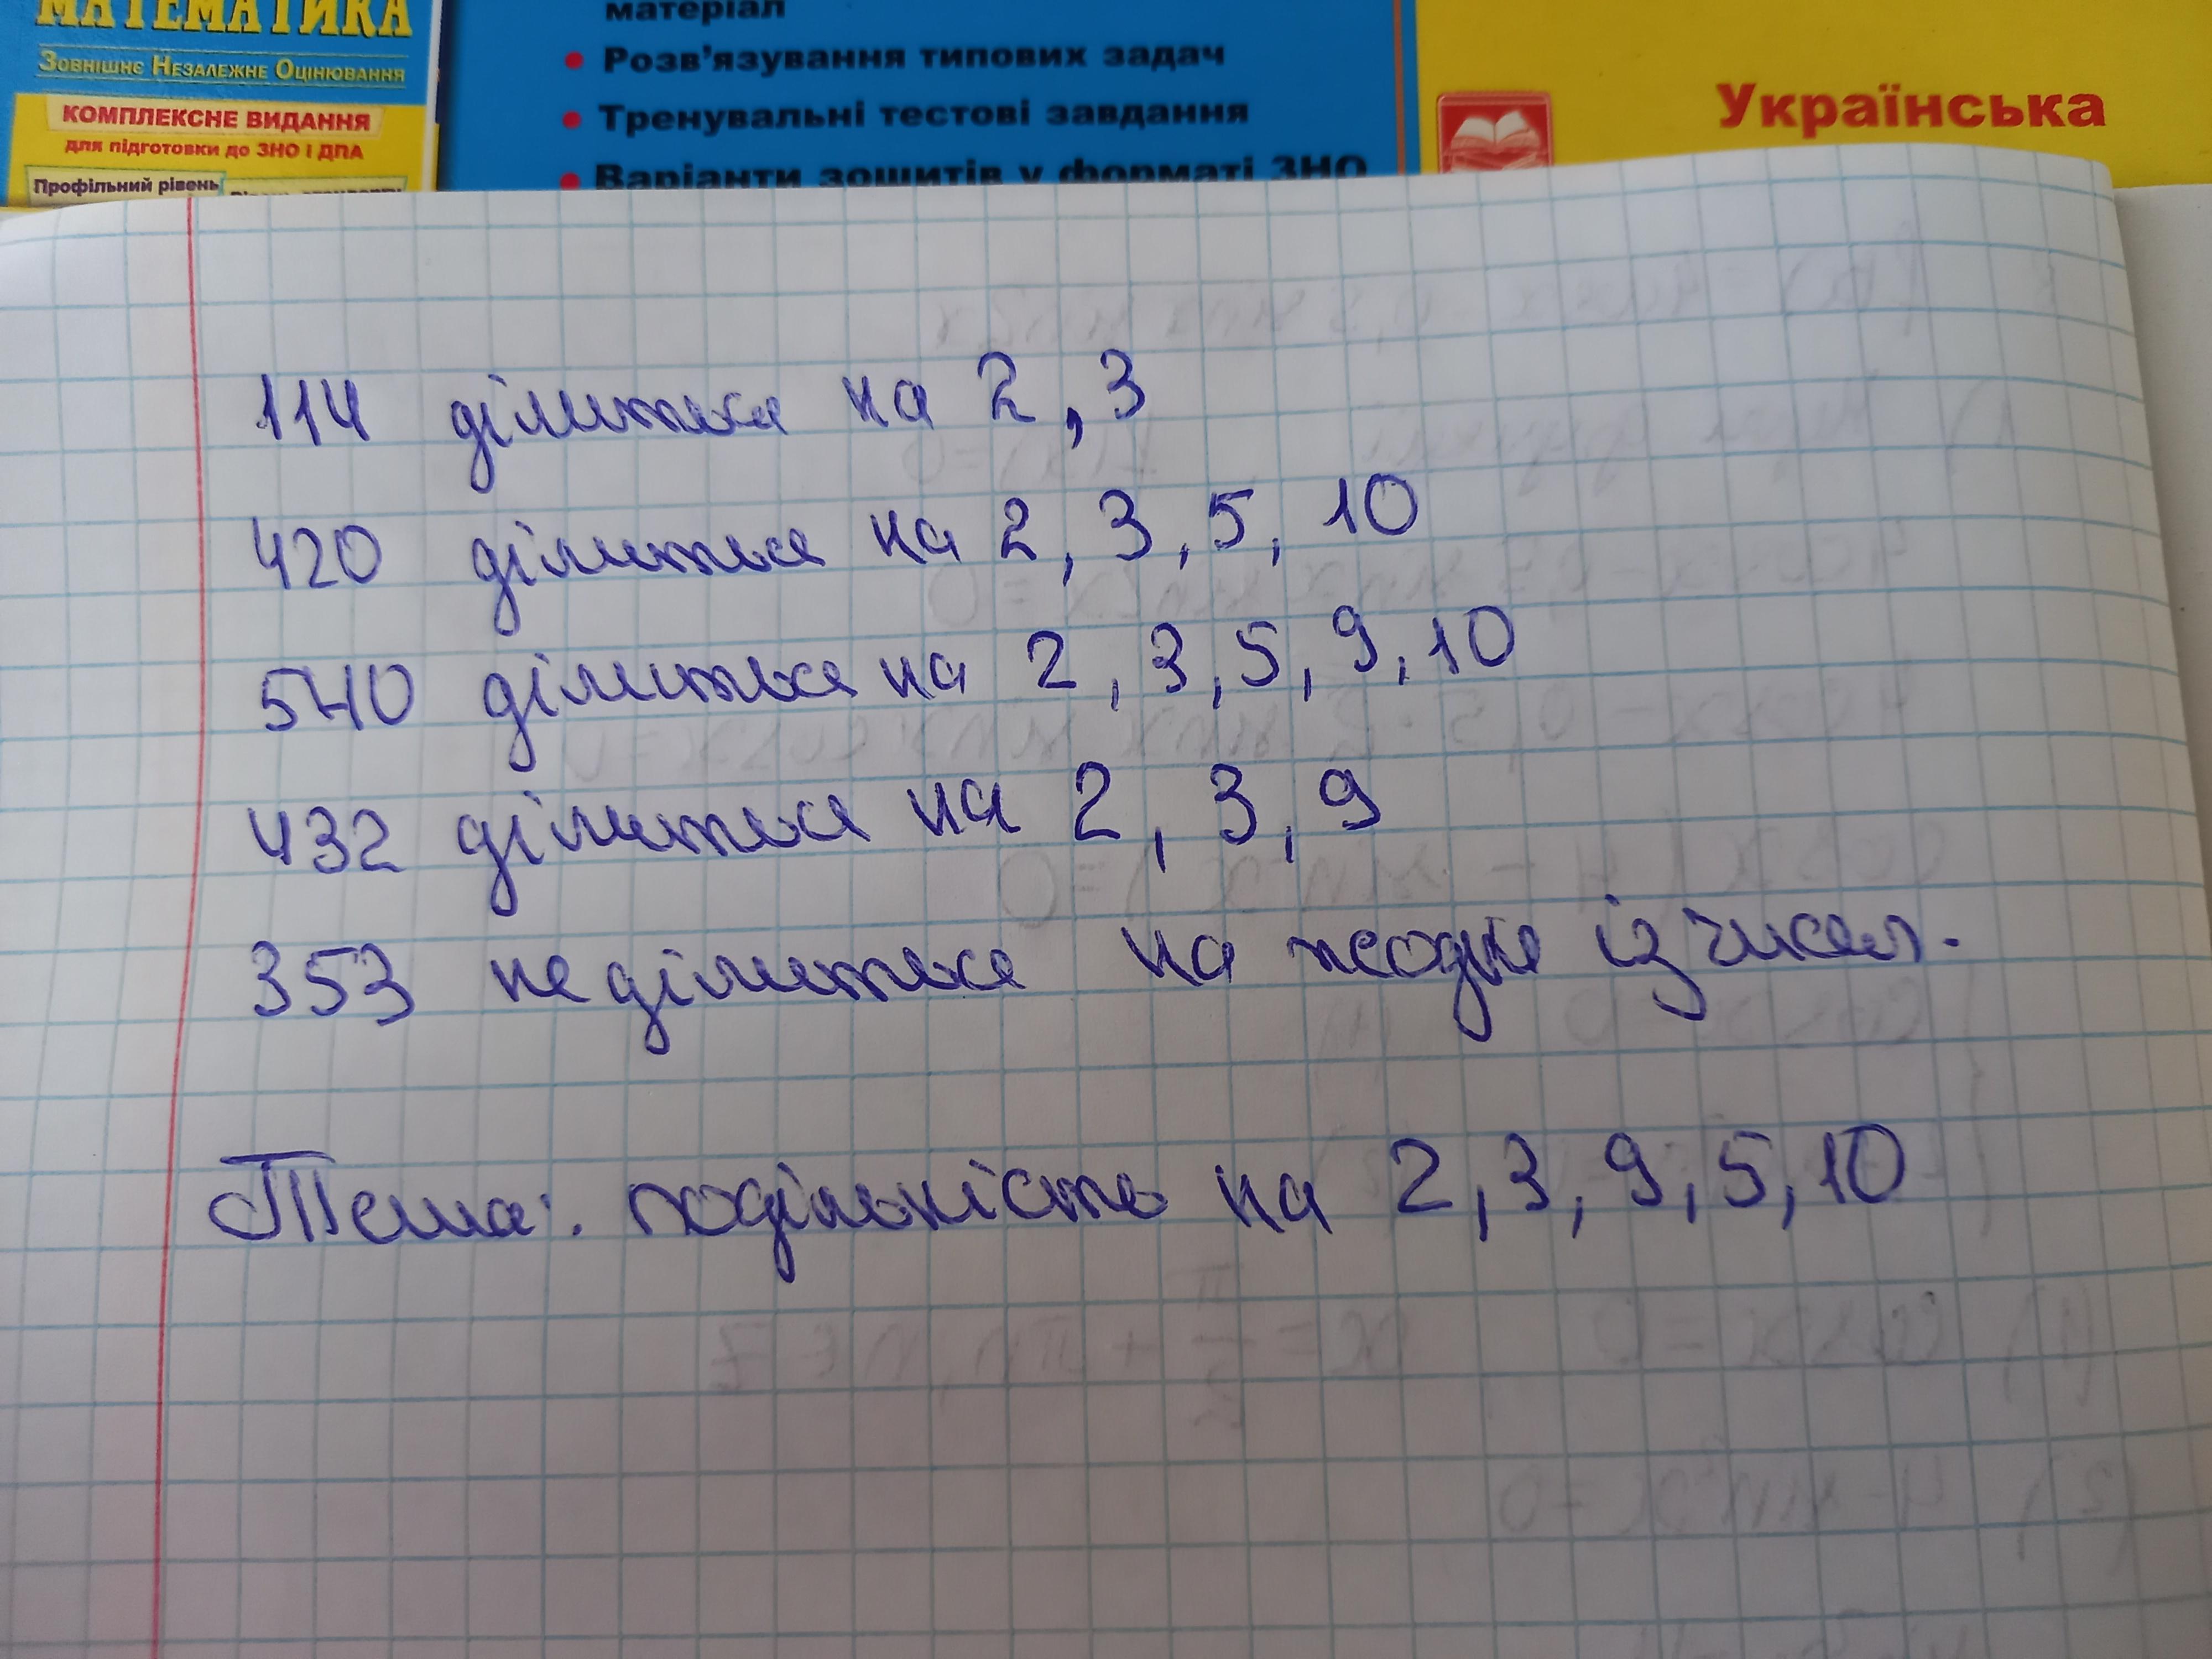 МАТЕМАТИКА
Зовнішнє Незалежне Оцінювання
КОМПЛЕКСНЕ ВИДАННЯ
для підготовки до ЗНО і ДПА
Профільний рівень
матеріал
• Розв'язування типових задач
• Тренувальні тестові завдання
• Варіанти зошитів у форматі ЗНО
Українська
114 ділиться на 2, 3
420 ділиться на 2, 3, 5, 10
540 ділиться на 2, 3, 5, 9, 10
432 ділиться на 2, 3, 9
353 не ділиться на жодне із чисел.
Тема: подільність на 2, 3, 9, 5, 10